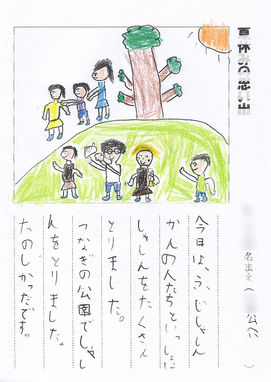 夏休みの思い出
名まえ( 公へ )
今日は、ふじしゃしん
かんの人たちといっしょに
しゃしんをたくさん
とりました。
つなぎの公園でしゃし
んをとりました。
たのしかったです。